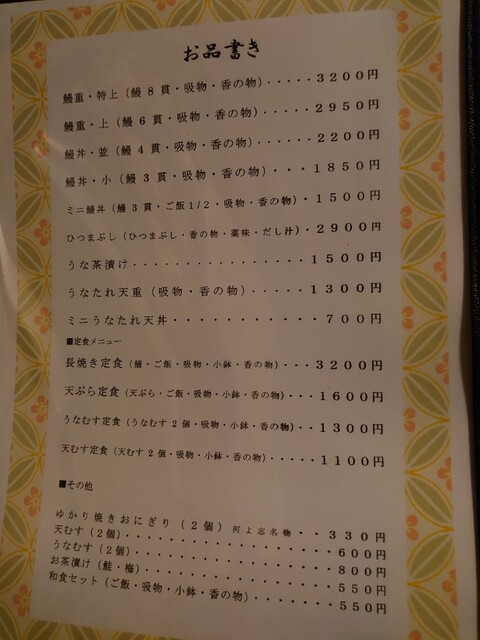 お品書き
鰻重・特上（鰻８貫・吸物・香の物）・・・・・３２００円
鰻重・上（鰻６貫・吸物・香の物）・・・・・・２９５０円
鰻丼・並（鰻４貫・吸物・香の物）・・・・・・２２００円
鰻丼・小（鰻３貫・吸物・香の物）・・・１８５０円
ミニ鰻丼（鰻３貫・ご飯１/２・吸物・香の物）・１５００円
ひつまぶし（ひつまぶし・香の物・薬味・だし汁）・２９００円
うな茶漬け・・・・・・・・・・・・・・・１５００円
うなたれ天重（吸物・香の物）・・・・・１３００円
ミニうなたれ天丼・・・・・・・・・・・・７００円
■定食メニュー
長焼き定食（鰻・ご飯・吸物・小鉢・香の物）・・・３２００円
天ぷら定食（天ぷら・ご飯・吸物・小鉢・香の物）・・・１６００円
うなむす定食（うなむす２個・吸物・小鉢・香の物）・・１３００円
天むす定食（天むす２個・吸物・小鉢・香の物）・・・・・１１００円
■その他
ゆかり焼きおにぎり（２個）河よ志名物・・３３０円
天むす（２個）・・・・・・・・・・・・・・・６００円
うなむす（２個）・・・・・・・・・・・・・・８００円
お茶漬け（鮭・梅）・・・・・・・・・・・・・５５０円
和食セット（ご飯・吸物・小鉢・香の物）・・・・・５５０円